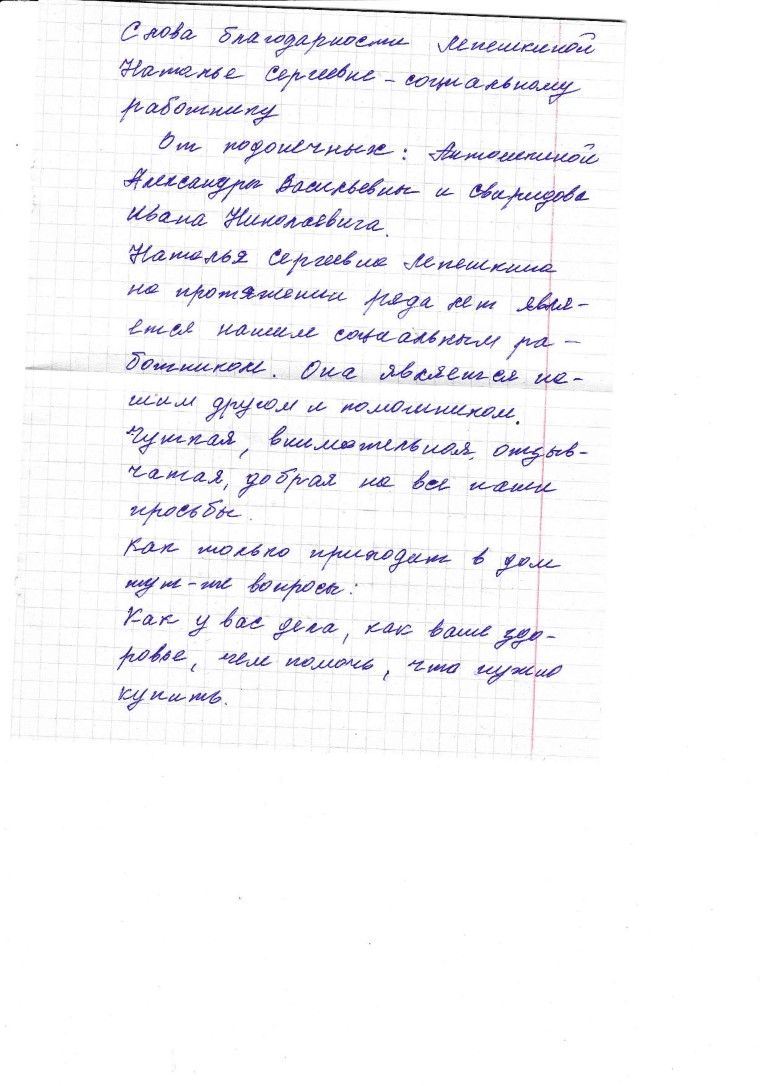 Слова благодарности Лепешкиной
Наталье Сергеевне - социальному
работнику
От подопечных: Антошкиной
Александры Васильевны и Свиридова
Ивана Николаевича.
Наталья Сергеевна Лепешкина
на протяжении ряда лет явля-
ется нашим социальным ра-
ботником. Она является на-
шим другом и помошником.
Чуткая, внимательная, отзыв-
чатая, добрая на все наши
просьбы.
Как только приходит в дом
тут-же вопросы:
Как у вас дела, как ваше здо-
ровье, чем помочь, что нужно
купить.